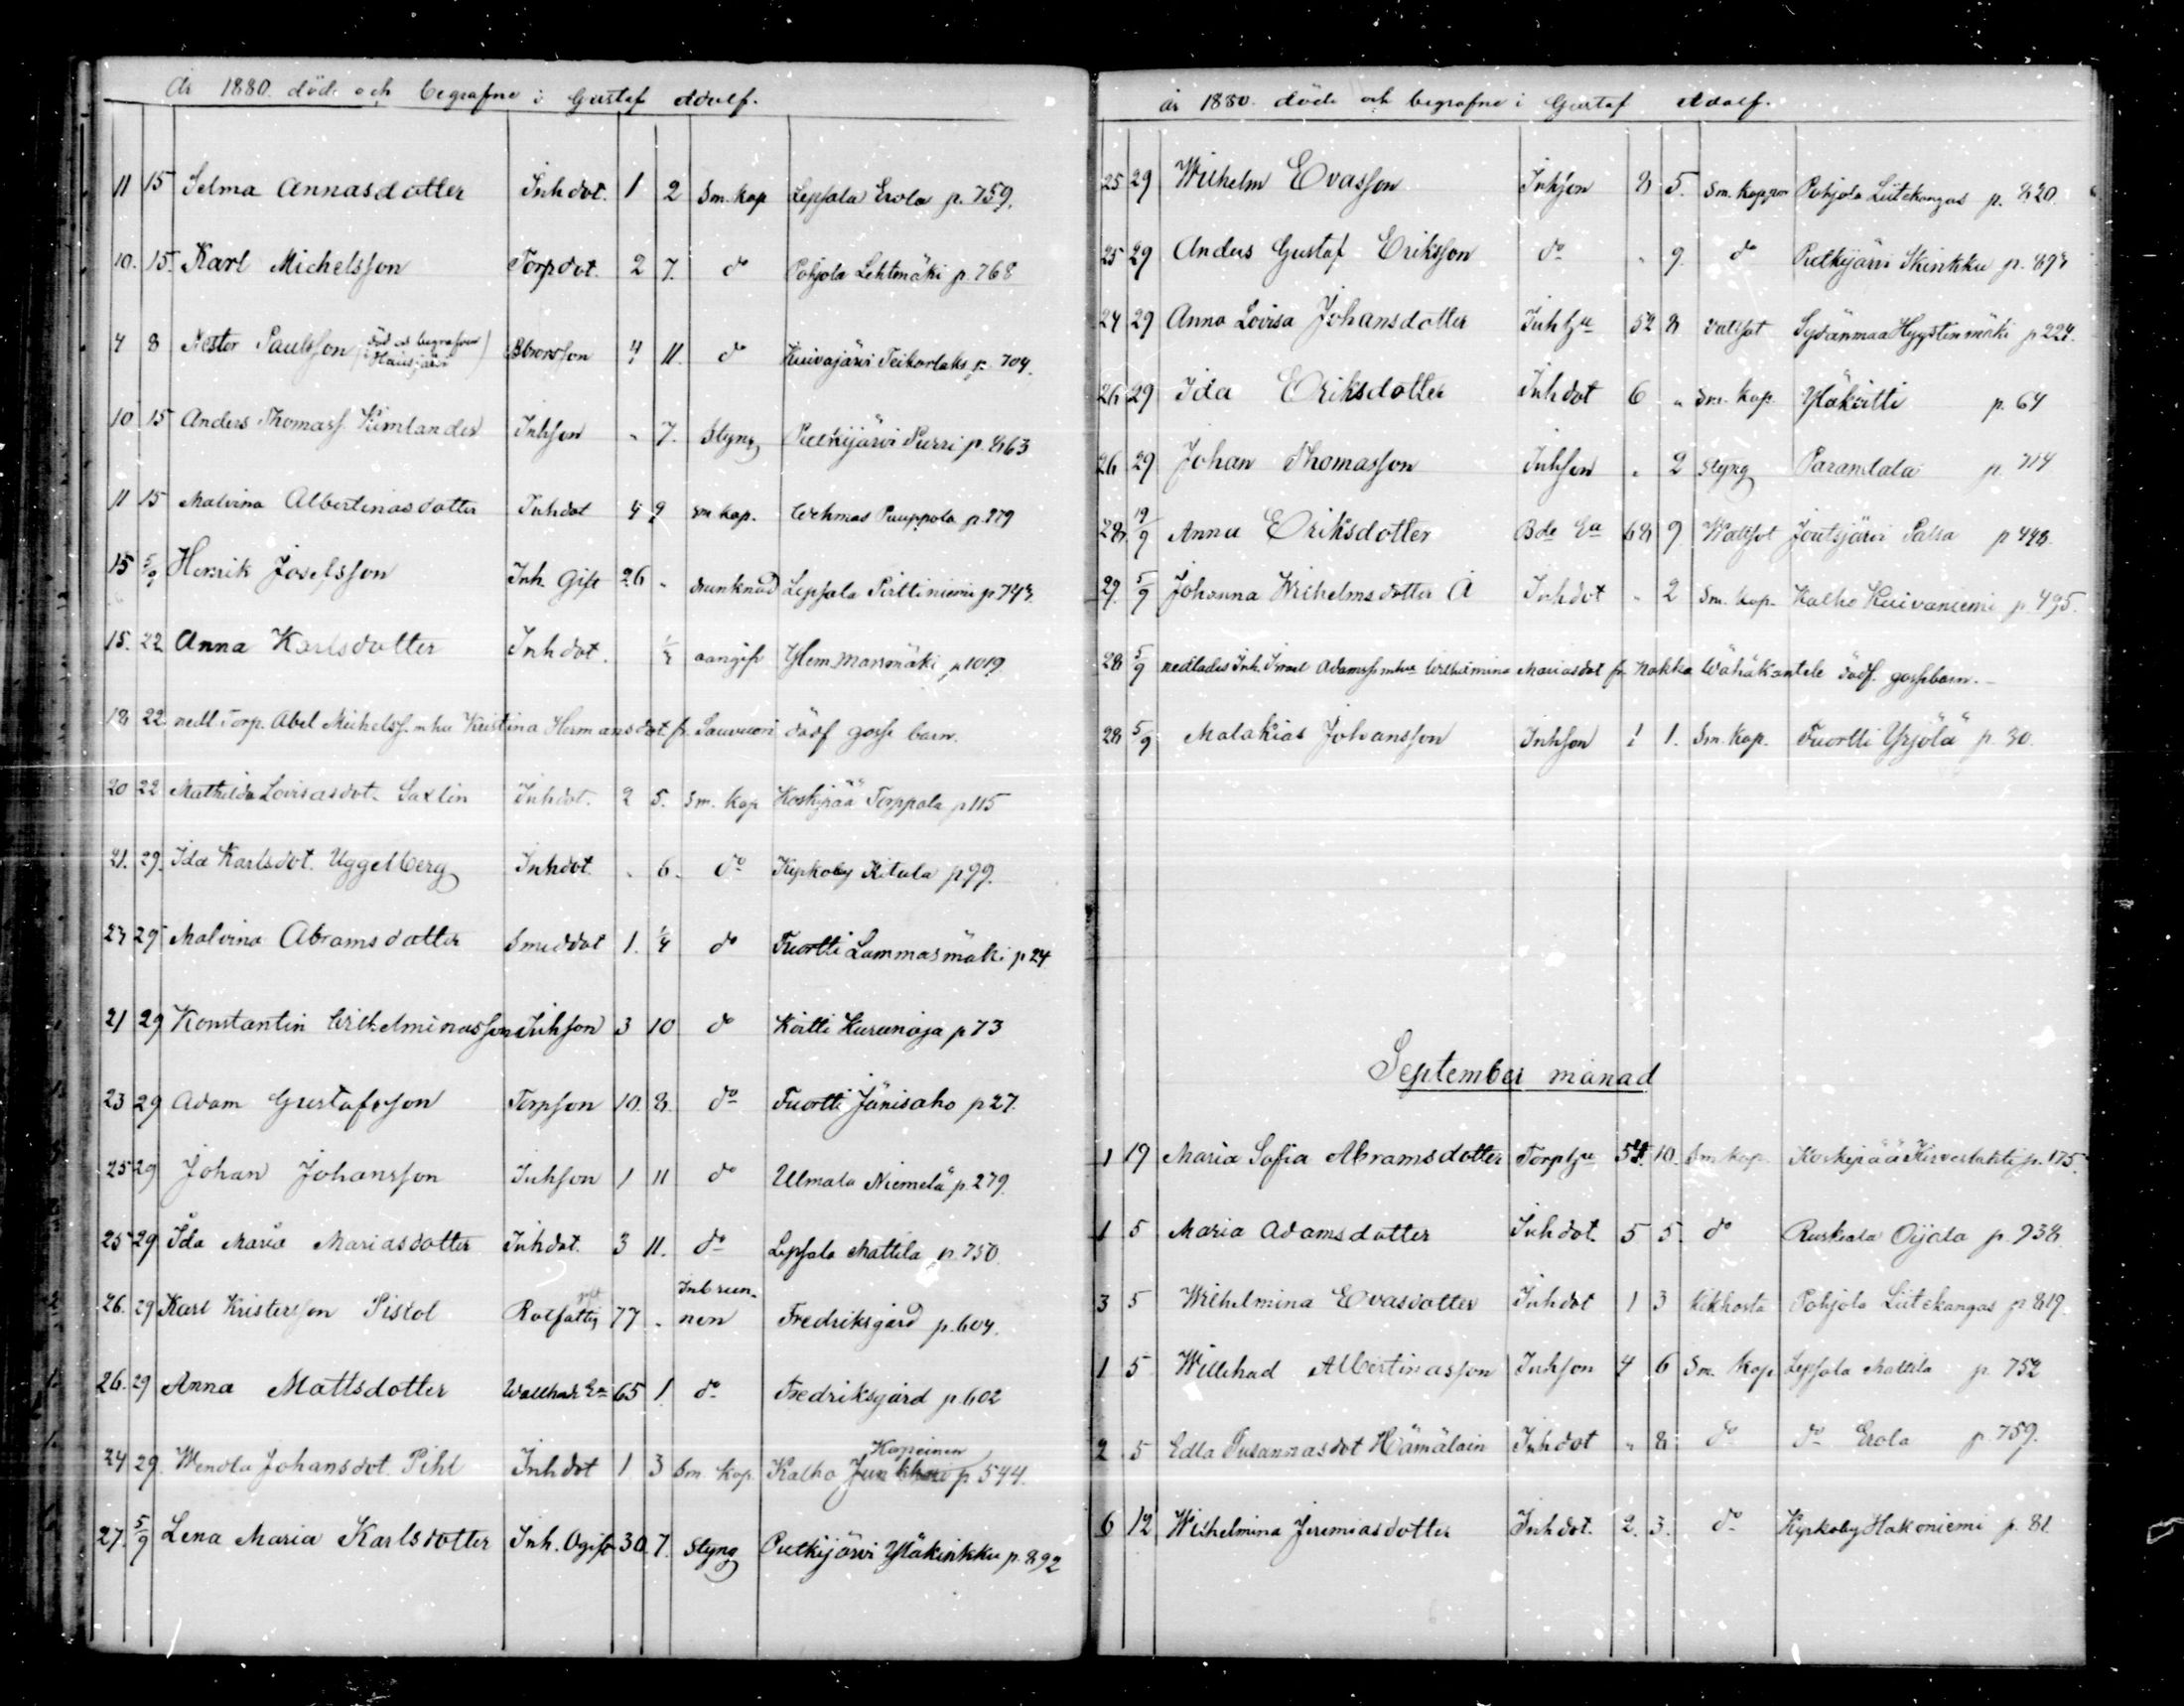 År 1880. död. och begrafne i Gustaf Adolf.
11 15 Selma Annasdotter Inhdot. 1 2 Sm. kop Lepsala Erola p. 759.
10. 15. Karl Michelsson Torpdot. 2 7. do Pohjola Lehtmäki p. 768
4 8 Nestor Paulsson (död och begrafven i Hausjärvi) Bbrorsson 4 11. do Kuivajärvi p. 704.
10 15 Anders Thomass. Kimlander Inhson " 7. Styng Putkijärvi Purri p. 863
11 15 Malvina Albertinasdotter Inhdot 4 9 sm kop. Wehmas Puuppola p. 279
15 5/9 Henrik Josefsson Inh. Gift 26 " drunknad Lepsala Pirttiniemi p. 743.
15. 22 Anna Karlsdotter Inhdot. oangifv p 1019
18 22. nedl. Torp. Abel Michelss. m hu Kristina Hermansdot fr. Sauvuori dödf gosse barn.
20 22 Mathilda Lovisasdot. Saxlin Inhdot. 2 5. Sm. kop Koskipää Torppala p 115
21. 29. Ida Karlsdot. Uggelberg Inhdot. " 6. do Kyrkoby Kitula p 99.
23 29 Malvina Abramsdotter Smeddot 1. 1/4 do Tuortti Lammasmäki p 24
21 29 Konstantin Wilhelminasson Inhson 3 10 do Koitti Kurunoja p 73
23 29 Adam Gustafsson Torpson 10. 8. do Tuortti Jänisaho p 27.
25 29 Johan Johansson Inhson 1 11 do Ulmala Niemelä p. 279.
25 29 Ida Maria Mariasdotter Inhdot. 3 11. do Lepsala Mattila p. 750.
26. 29 Karl Kristersson Pistol Rotfattig gift 77 " Inbrunnen Fredriksgård p. 604.
26. 29 Anna Mattsdotter Wallhards Ea 65 1. do Fredriksgård p. 602
24 29. Wendla Johansdot. Pihl Inhdot 1. 3 Sm. kop. Kalho Korpeinen p. 544.
27. 5/9 Lena Maria Karlsdotter Inh. Ogift 30. 7. Styng Putkijärvi Yläkinkku p. 892
år 1880. döde och begrafne i Gustaf Adolf.
25 29 Wilhelm Evasson Inhson 8 5. Sm. koppor Pohjola Liitekangas p. 820
25 29 Anders Gustaf Eriksson do " 9 do Putkijärvi Skinkku p. 893
24 29 Anna Lovisa Johansdotter Inhhu 52 8 Vattsot Sydänmaa Hyystinmäki p 224.
26 29 Ida Eriksdotter Inhdot 6 " Sm. kop. Yläkoitti p. 64
26 29 Johan Thomasson Inhson " 2 Styng Parantala p. 714
28. 19/9 Anna Eriksdotter Bde Ea 68 9 Wattsot Joutsjärvi Palsa p 448.
29. 5/9 Johanna Wilhelmsdotter Å Inhdot " 2 Sm. kop. Kalho Kuivaniemi p 495.
28 5/9 nedlades Inh. Israel Adamss. m hu Wilhelmina Mariasdot fr. Nokka Wähäkantele dödf. gossebarn.
28 5/9 Malakias Johansson Inhson 1 1. Sm. kop. Tuortti Yrjölä p. 30.
September månad
1 19 Maria Sofia Abramsdotter Torphu 54. 10. Sm kop. Koskipää Kirveslahti p. 175.
1 5 Maria Adamsdotter Inhdot. 5 5. do Ruskeala Oijala p. 938
3 5 Wilhelmina Evasdotter Inhdot 1 3 Kikhosta Pohjola Liitekangas p 819.
1 5 Willehad Albertinasson Inhson 4 6 Sm. kop Lepsala Mattila p. 752
2 5 Edla Susannasdot Hämäläin Inhdot " 8 do do Erola p. 759.
6 12 Wilhelmina Jeremiasdotter Inhdot. 2. 3. do Kyrkoby Hakoniemi p. 81.